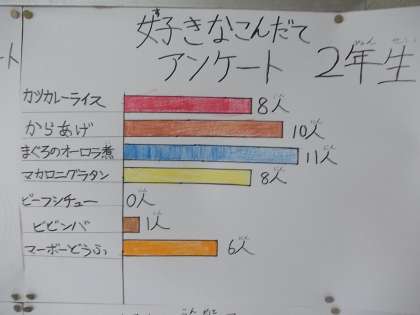 好きなこんだて
アンケート 2年生
カツカレーライス 8人
からあげ 10人
まぐろのオーロラ煮 11人
マカロニグラタン 8人
ビーフシチュー 0人
ビビンバ 1人
マーボーどうふ 6人